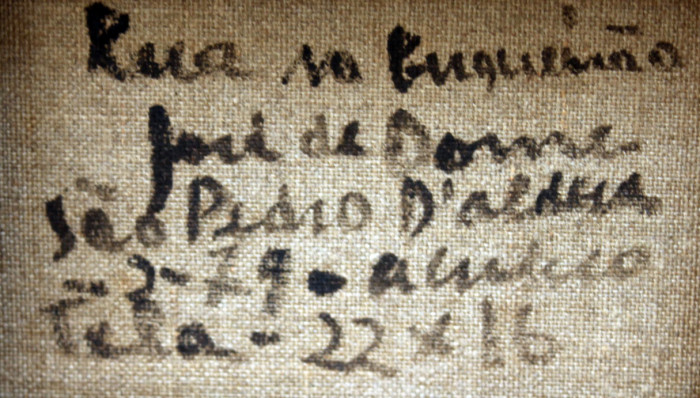 Rua no Buqueirão
José de Dome
São Pedro D'aldeia
- 2-79 - acrilico
Tela - 22 x 16